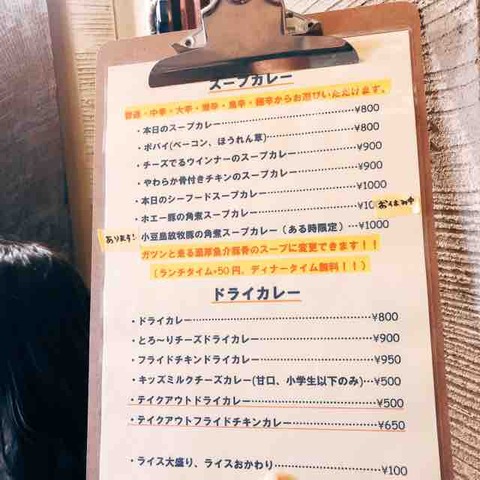 スープカレー
普通・中辛・大辛・激辛・鬼辛・極辛からお選びいただけます。
・本日のスープカレー ¥800
・ポパイ(ベーコン、ほうれん草) ¥800
・チーズでるウインナーのスープカレー ¥900
・やわらか骨付きチキンのスープカレー ¥900
・本日のシーフードスープカレー ¥1000
・ホエー豚の角煮スープカレー お休み中
あります! 小豆島放牧豚の角煮スープカレー(ある時限定) ¥1000
ガツンと来る濃厚魚介豚骨のスープに変更できます!!
(ランチタイム+50円、ディナータイム無料!!)
ドライカレー
・ドライカレー ¥800
・とろ〜りチーズドライカレー ¥900
・フライドチキンドライカレー ¥950
・キッズミルクチーズカレー(甘口、小学生以下のみ) ¥500
・テイクアウトドライカレー ¥500
・テイクアウトフライドチキンカレー ¥650
・ライス大盛り、ライスおかわり ¥100